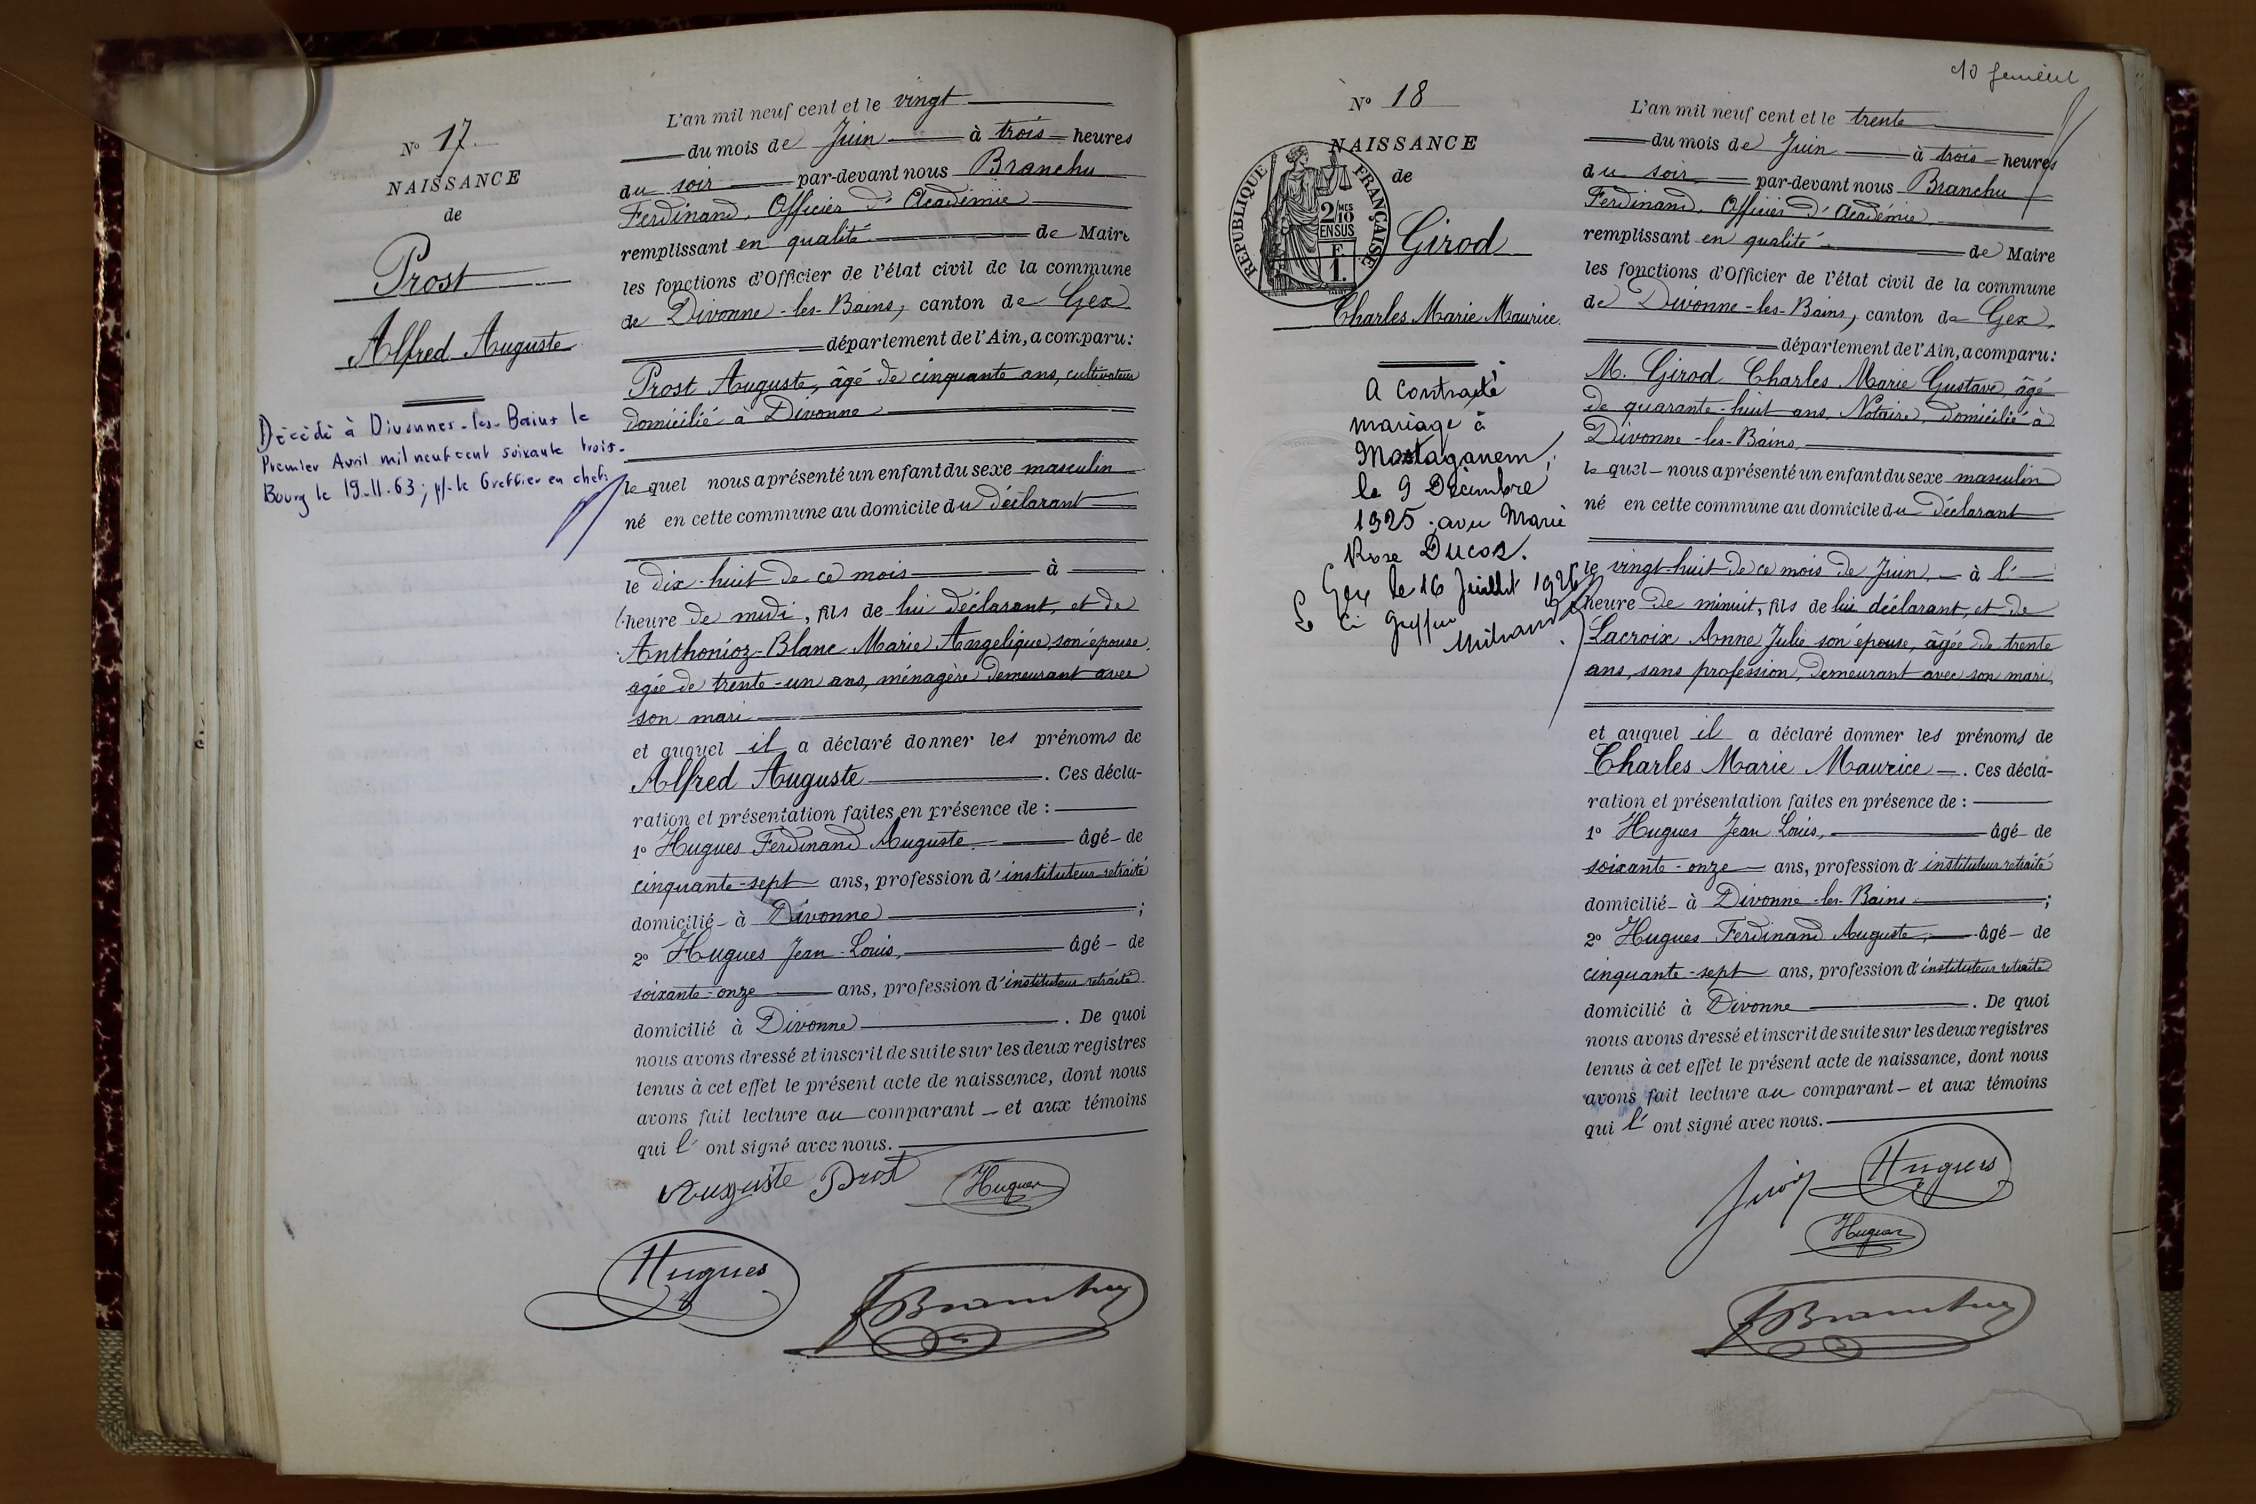 N° 17
NAISSANCE
de
Prost
Alfred Auguste
Décédé à Divonnes-les-Bains le
Premier Avril mil neuf cent soixante trois.
Bourg le 19-11-63; p/ le Greffier en chef:
L'an mil neuf cent et le vingt
du mois de Juin à trois heures
du soir par-devant nous Branchu
Ferdinand, Officier d'Académie
remplissant en qualité de Maire
les fonctions d'Officier de l'état civil de la commune
de Divonne-les-Bains, canton de Gex
département de l'Ain, a comparu:
Prost Auguste, âgé de cinquante ans, cultivateur
domicilié à Divonne
lequel nous a présenté un enfant du sexe masculin
né en cette commune au domicile du déclarant
le dix-huit de ce mois à
l'heure de midi, fils de lui déclarant, et de
Anthonioz-Blanc Marie Angelique, son épouse,
agée de trente-un ans, ménagère demeurant avec
son mari
et auquel il a déclaré donner les prénoms de
Alfred Auguste. Ces décla-
ration et présentation faites en présence de :
1° Hugues Ferdinand Auguste âgé de
cinquante-sept ans, profession d'instituteur retraité
domicilié à Divonne ;
2° Hugues Jean-Louis, âgé de
soixante-onze ans, profession d'instituteur retraité
domicilié à Divonne. De quoi
nous avons dressé et inscrit de suite sur les deux registres
tenus à cet effet le présent acte de naissance, dont nous
avons fait lecture au comparant et aux témoins
qui l'ont signé avec nous.
Auguste Prost Hugues
Hugues
Branchu
10 Geniève
N° 18
NAISSANCE
de
RÉPUBLIQUE FRANÇAISE
2/10 MES
EN SUS
F.
1.
Girod
Charles Marie Maurice.
A contracté
mariage à
Mostaganem,
le 9 Décembre
1925 avec Marie
Rose Ducos.
Gex le 16 Juillet 1926
Le Greffier
L'an mil neuf cent et le trente
du mois de Juin à trois heures
du soir par-devant nous Branchu
Ferdinand, Officier d'Académie
remplissant en qualité de Maire
les fonctions d'Officier de l'état civil de la commune
de Divonne-les-Bains, canton de Gex,
département de l'Ain, a comparu:
M. Girod Charles Marie Gustave, âgé
de quarante-huit ans, Notaire, domicilié à
Divonne-les-Bains,
lequel nous a présenté un enfant du sexe masculin
né en cette commune au domicile du déclarant
le vingt-huit de ce mois de Juin, à l'
heure de minuit, fils de lui déclarant, et de
Lacroix Anne Julie son épouse, âgée de trente
ans, sans profession, demeurant avec son mari,
et auquel il a déclaré donner les prénoms de
Charles Marie Maurice. Ces décla-
ration et présentation faites en présence de :
1° Hugues Jean Louis, âgé de
soixante-onze ans, profession d'instituteur retraité
domicilié à Divonne-les-Bains ;
2° Hugues Ferdinand Auguste, âgé de
cinquante-sept ans, profession d'instituteur retraité
domicilié à Divonne. De quoi
nous avons dressé et inscrit de suite sur les deux registres
tenus à cet effet le présent acte de naissance, dont nous
avons fait lecture au comparant et aux témoins
qui l'ont signé avec nous.
Girod Hugues
Hugues
Branchu